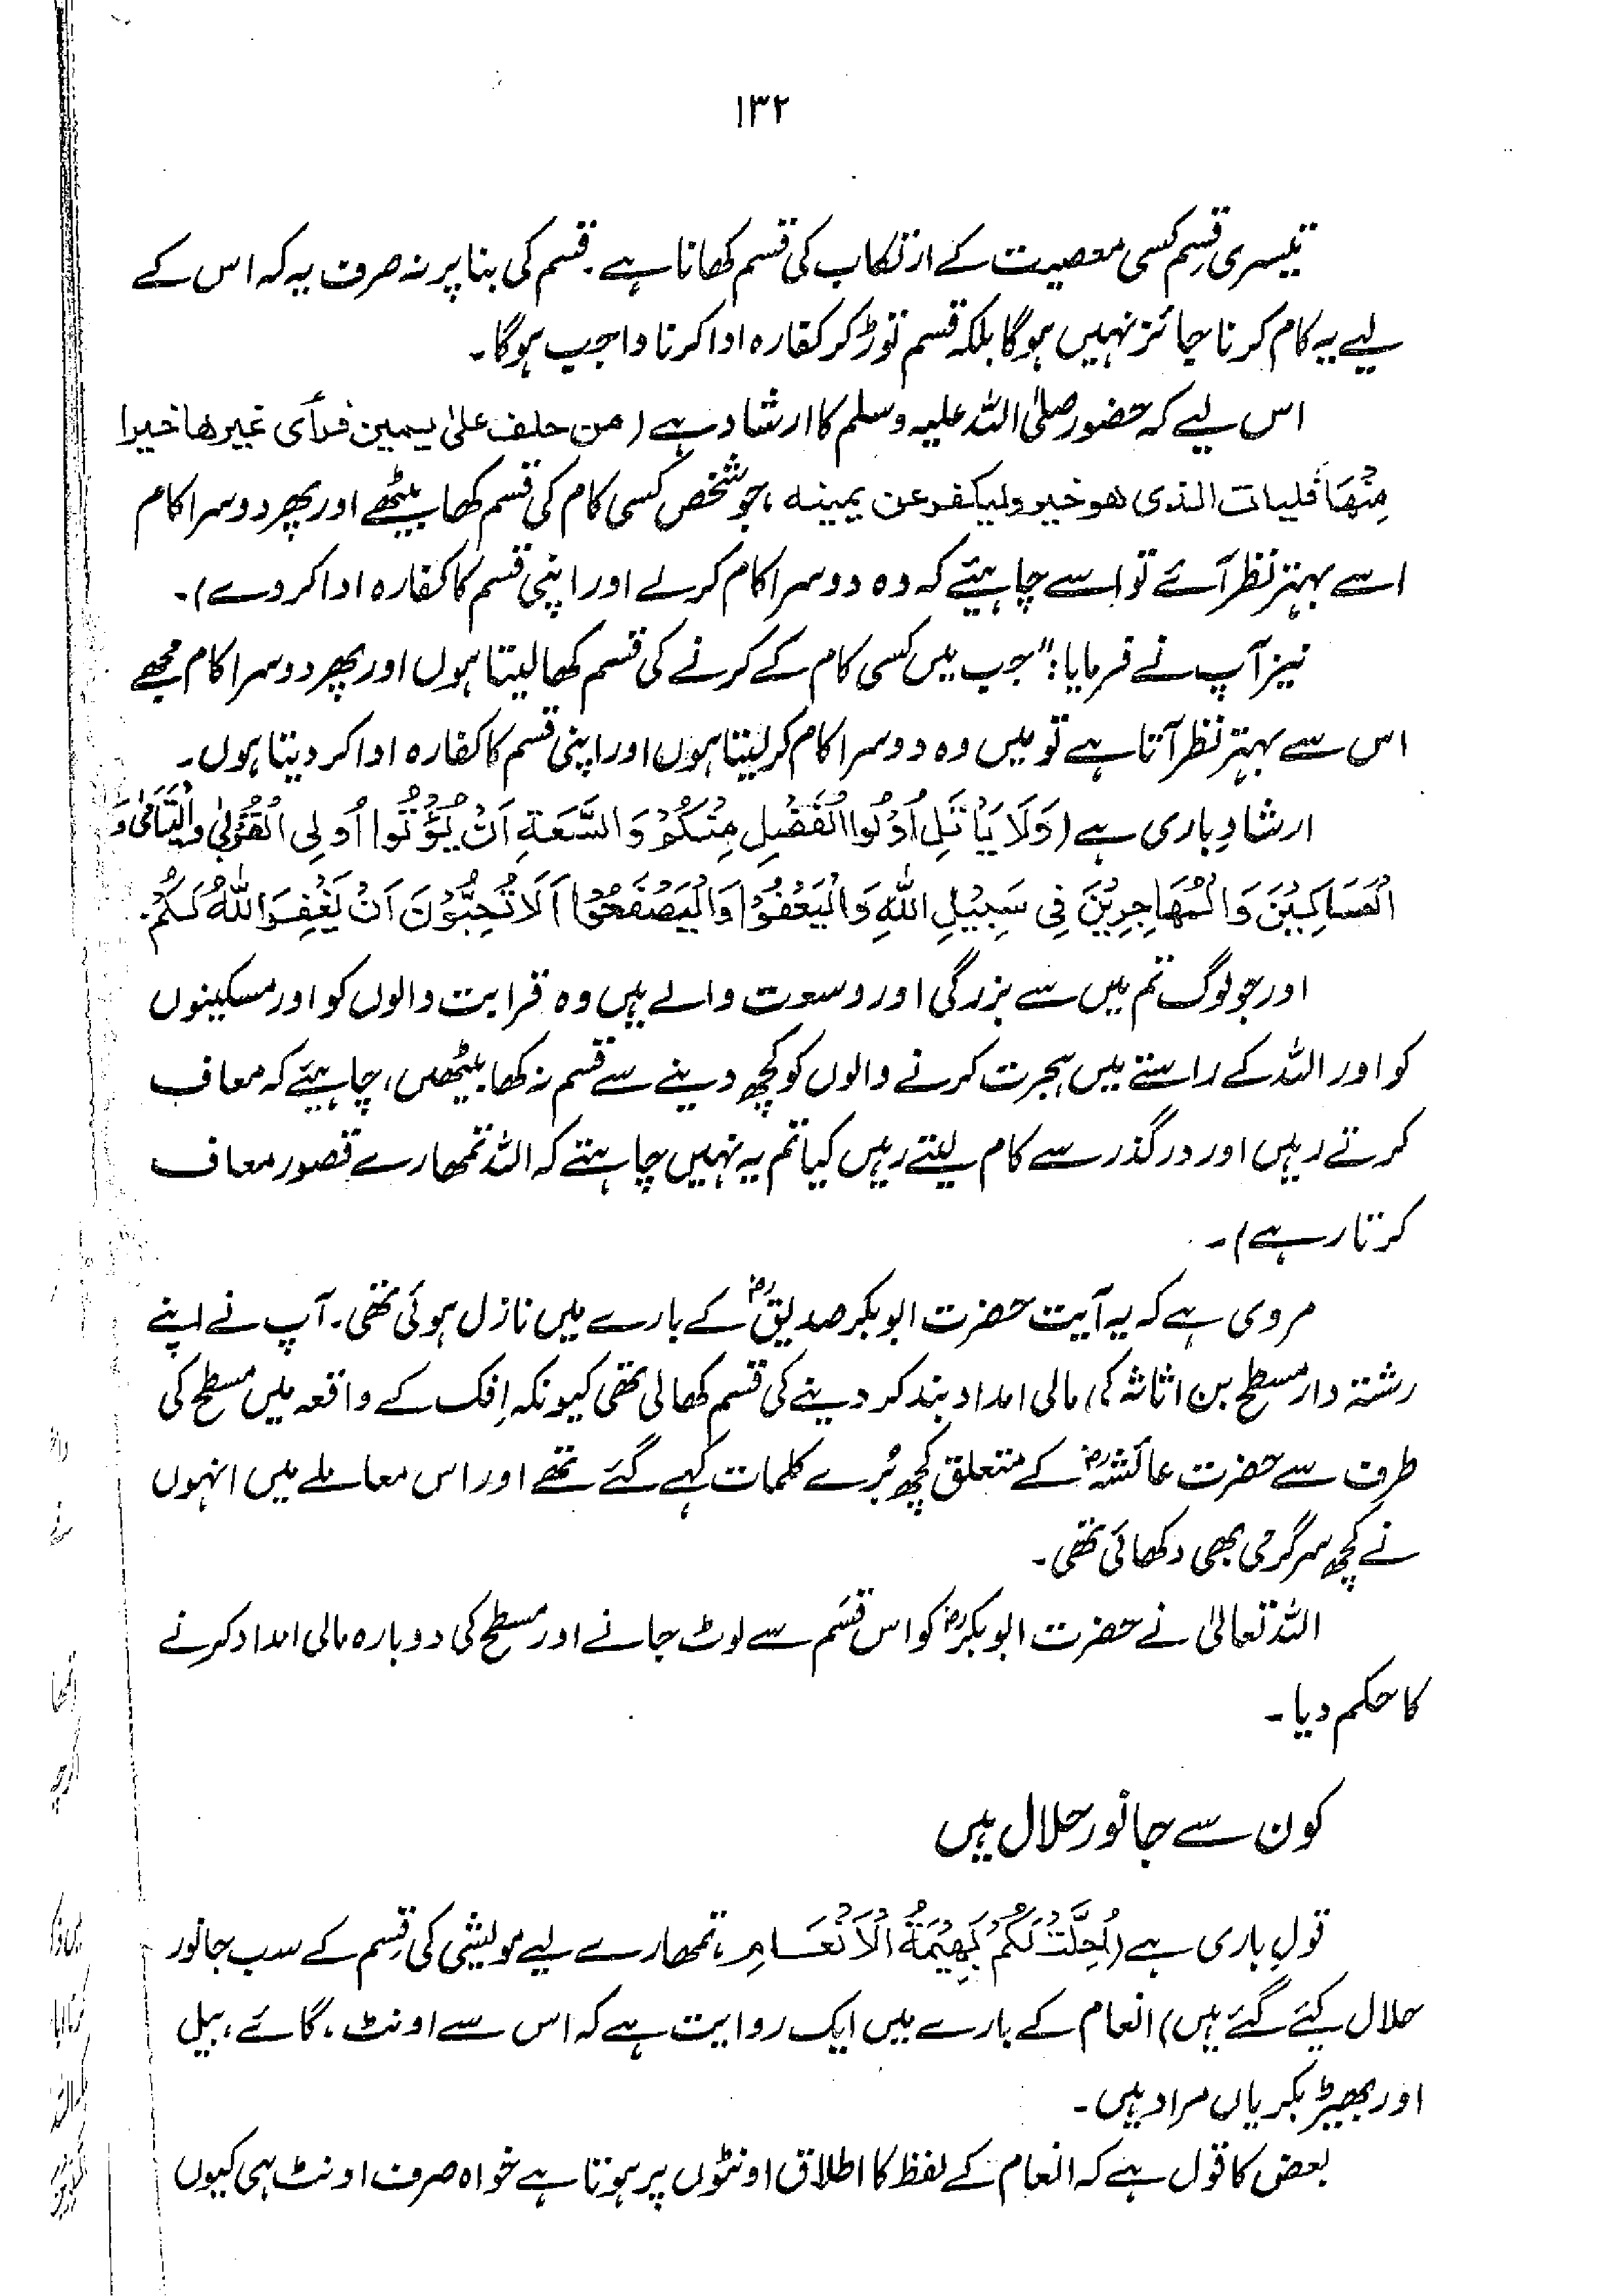 ۱۳۲
تیسری قِسم کسی معصیت کے ارتکاب کی قسم کھانا ہے۔ قسم کی بنا پر نہ صرف یہ کہ اس کے
لیے یہ کام کرنا جائز نہیں ہوگا بلکہ قسم توڑ کر کفارہ ادا کرنا واجب ہوگا۔
اس لیے کہ حضور صلی اللہ علیہ وسلم کا ارشاد ہے (من حلف علیٰ یمین فرأی غیرھا خیرا
مِنْهَا فلیات الذی ھو خیر ولیکفر عن یمینہ، جو شخص کسی کام کی قسم کھا بیٹھے اور پھر دوسرا کام
اسے بہتر نظر آئے تو اسے چاہیئے کہ وہ دوسرا کام کرلے اور اپنی قسم کا کفارہ ادا کر دے)۔
نیز آپ نے فرمایا: "جب میں کسی کام کے کرنے کی قسم کھا لیتا ہوں اور پھر دوسرا کام مجھے
اس سے بہتر نظر آتا ہے تو میں وہ دوسرا کام کر لیتا ہوں اور اپنی قسم کا کفارہ ادا کر دیتا ہوں۔
ارشادِ باری ہے (وَلَا يَأْتَلِ اُولُوا الْفَضْلِ مِنْكُمْ وَالسَّعَةِ اَنْ يُّؤْتُوا اُولِی الْقُرْبٰی وَالْيَتَامٰی وَ
الْمَسَاكِيْنَ وَالْمُهَاجِرِيْنَ فِی سَبِيْلِ اللّٰهِ وَالْيَعْفُوْا وَالْيَصْفَحُوْا اَلَا تُحِبُّوْنَ اَنْ يَّغْفِرَ اللّٰهُ لَكُمْ.
اور جو لوگ تم میں سے بزرگی اور وسعت والے ہیں وہ قرابت والوں کو اور مسکینوں
کو اور اللہ کے راستے میں ہجرت کرنے والوں کو کچھ دینے سے قسم نہ کھا بیٹھیں، چاہیئے کہ معاف
کرتے رہیں اور درگذر سے کام لیتے رہیں کیا تم یہ نہیں چاہتے کہ اللہ تمھارے قصور معاف
کرتا رہے)۔
مروی ہے کہ یہ آیت حضرت ابوبکر صدیقؓ کے بارے میں نازل ہوئی تھی۔ آپ نے اپنے
رشتہ دار مسطح بن اثاثہ کی مالی امداد بند کر دینے کی قسم کھالی تھی کیونکہ اِفک کے واقعہ میں مسطح کی
طرف سے حضرت عائشہؓ کے متعلق کچھ بُرے کلمات کہے گئے تھے اور اس معاملے میں انہوں
نے کچھ سرگرمی بھی دکھائی تھی۔
اللہ تعالیٰ نے حضرت ابوبکرؓ کو اس قسَم سے لوٹ جانے اور مسطح کی دوبارہ مالی امداد کرنے
کا حکم دیا۔
کون سے جانور حلال ہیں
قولِ باری ہے (اُحِلَّتْ لَكُمْ بَهِيْمَةُ الْاَنْعَامِ، تمھارے لیے مویشی کی قِسم کے سب جانور
حلال کیئے گئے ہیں) انعام کے بارے میں ایک روایت ہے کہ اس سے اونٹ، گائے، بیل
اور بھیڑ بکریاں مراد ہیں۔
بعض کا قول ہے کہ انعام کے لفظ کا اطلاق اونٹوں پر ہوتا ہے خواہ صرف اونٹ ہی کیوں